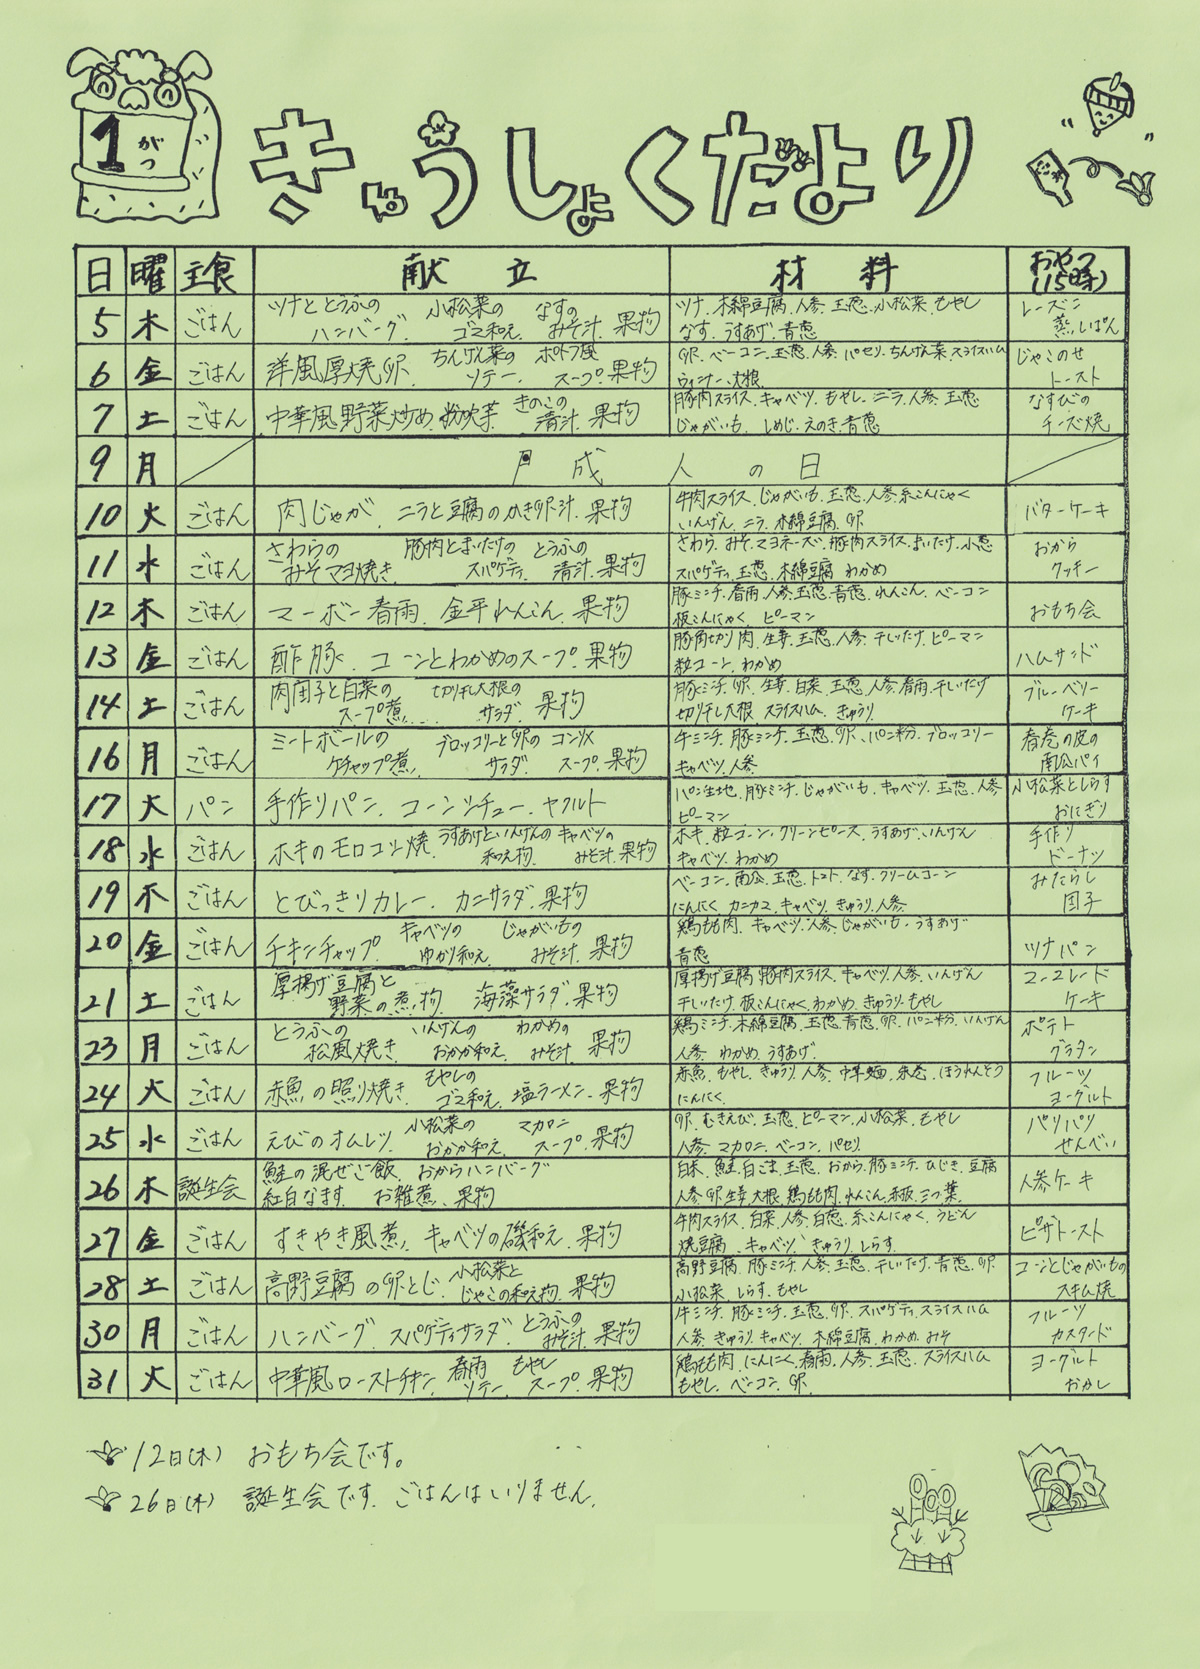 1がつ
きゅうしょくだより
日 曜 主食 献立 材料 おやつ(15時)
5 木 ごはん ツナととうふのハンバーグ 小松菜のゴマ和え なすのみそ汁 果物 ツナ.木綿豆腐.人参.玉葱.小松菜.もやし レーズン
なす.うすあげ.青葱 蒸しぱん
6 金 ごはん 洋風厚焼卵 ちんげん菜のソテー ポトフ風スープ 果物 卵.ベーコン.玉葱.人参.パセリ.ちんげん菜.スライスハム じゃこのせ
ウィンナー.大根 トースト
7 土 ごはん 中華風野菜炒め.粉吹芋 きのこの清汁 果物 豚肉スライス.キャベツ.もやし.ニラ.人参.玉葱 なすびの
じゃがいも.しめじ.えのき.青葱 チーズ焼
9 月 成人の日
10 火 ごはん 肉じゃが.ニラと豆腐のかき卵汁.果物 牛肉スライス.じゃがいも.玉葱.人参.糸こんにゃく バターケーキ
いんげん.ニラ.木綿豆腐.卵
11 水 ごはん さわらのみそマヨ焼き 豚肉とまいたけのスパゲティ とうふの清汁 果物 さわら.みそ.マヨネーズ.豚肉スライス.まいたけ.小葱 おから
スパゲティ.玉葱.木綿豆腐 わかめ クッキー
12 木 ごはん マーボー春雨.金平れんこん.果物 豚ミンチ.春雨.人参.玉葱.青葱.れんこん.ベーコン おもち会
板こんにゃく.ピーマン
13 金 ごはん 酢豚.コーンとわかめのスープ.果物 豚角切り肉.生姜.玉葱.人参.干しいたけ.ピーマン ハムサンド
粒コーン.わかめ
14 土 ごはん 肉団子と白菜のスープ煮 切り干し大根のサラダ 果物 豚ミンチ.卵.生姜.白菜.玉葱.人参.春雨.干しいたけ ブルーベリー
切り干し大根 スライスハム.きゅうり ケーキ
16 月 ごはん ミートボールのケチャップ煮 ブロッコリーと卵のサラダ コンソメスープ 果物 牛ミンチ.豚ミンチ.玉葱.卵.パン粉.ブロッコリー 春巻の皮の
キャベツ.人参 南瓜パイ
17 火 パン 手作りパン.コーンシチュー.ヤクルト パン生地.豚ミンチ.じゃがいも.キャベツ.玉葱.人参 小松菜としらす
ピーマン おにぎり
18 水 ごはん ホキのモロコシ焼 うすあげといんげんの和え物 キャベツのみそ汁 果物 ホキ.粒コーン.グリーンピース.うすあげ.いんげん 手作り
キャベツ.わかめ ドーナツ
19 木 ごはん とびっきりカレー.カニサラダ.果物 ベーコン.南瓜.玉葱.トマト.なす.クリームコーン みたらし
にんにく.カニカマ.キャベツ.きゅうり.人参 団子
20 金 ごはん チキンチャップ キャベツのゆかり和え じゃがいものみそ汁 果物 鶏もも肉.キャベツ.人参.じゃがいも.うすあげ ツナパン
青葱
21 土 ごはん 厚揚げ豆腐と野菜の煮物 海藻サラダ.果物 厚揚げ豆腐.豚肉スライス.キャベツ.人参.いんげん マーマレード
干しいたけ.板こんにゃく.わかめ.きゅうり.もやし ケーキ
23 月 ごはん とうふの松風焼き いんげんのおかか和え わかめのみそ汁 果物 鶏ミンチ.木綿豆腐.玉葱.青葱.卵.パン粉.いんげん ポテト
人参.わかめ.うすあげ グラタン
24 火 ごはん 赤魚の照り焼き もやしのゴマ和え 塩ラーメン.果物 赤魚.もやし.きゅうり.人参.中華麺.朱巻.ほうれんそう フルーツ
にんにく ヨーグルト
25 水 ごはん えびのオムレツ 小松菜のおかか和え マカロニスープ 果物 卵.むきえび.玉葱.ピーマン.小松菜.もやし パリパリ
人参.マカロニ.ベーコン.パセリ せんべい
26 木 誕生会 鮭の混ぜご飯.おからハンバーグ 白米.鮭.白ごま.玉葱.おから.豚ミンチ.ひじき.豆腐 人参ケーキ
紅白なます.お雑煮.果物 人参.卵.生姜.大根.鶏もも肉.れんこん.赤板.三つ葉
27 金 ごはん すきやき風煮.キャベツの磯和え.果物 牛肉スライス.白菜.人参.白葱.糸こんにゃく.うどん ピザトースト
焼豆腐.キャベツ.きゅうり.しらす
28 土 ごはん 高野豆腐の卵とじ 小松菜とじゃこの和え物 果物 高野豆腐.豚ミンチ.人参.玉葱.干しいたけ.青葱.卵 コーンとじゃがいもの
小松菜.しらす.もやし スキム焼
30 月 ごはん ハンバーグ スパゲティサラダ とうふのみそ汁 果物 牛ミンチ.豚ミンチ.玉葱.卵.スパゲティ.スライスハム フルーツ
人参.きゅうり.キャベツ.木綿豆腐.わかめ.みそ カスタード
31 火 ごはん 中華風ローストチキン 春雨ソテー もやしスープ 果物 鶏もも肉.にんにく.春雨.人参.玉葱.スライスハム ヨーグルト
もやし.ベーコン.卵 おかし
12日(木) おもち会です。
26日(木) 誕生会です.ごはんはいりません.